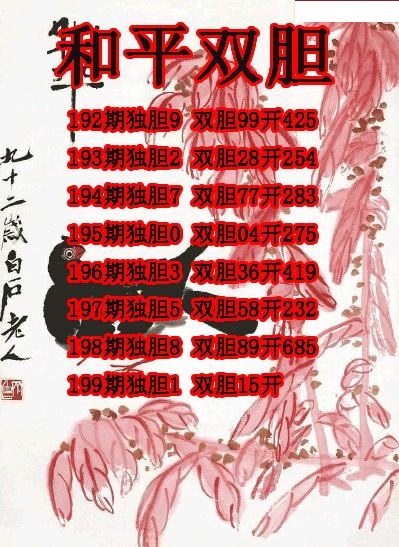 和平双胆
192期独胆9 双胆99开425
193期独胆2 双胆28开254
194期独胆7 双胆77开283
195期独胆0 双胆04开275
196期独胆3 双胆36开419
197期独胆5 双胆58开232
198期独胆8 双胆89开685
199期独胆1 双胆15开
九十二岁白石老人